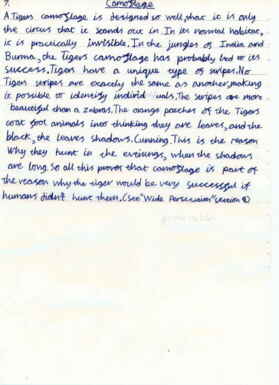 7. Camoflage
A Tigers camoflage is designed so well, that it is only
the circus that it stands out in. In its normal habitat,
it is practically invisible. In the jungles of India and
Burma, the Tigers camoflage has probably led to its
success. Tigers have a unique type of stripes. No
Tigers stripes are exactly the same as another, making
it possible to identify individuals. The stripes are more
beautiful than a zebras. The orange patches of the Tigers
coat fool animals into thinking they are leaves, and the
black, the leaves shadows. Cunning. This is the reason
Why they hunt in the evenings, when the shadows
are long. So all this proves that camoflage is part of
the reason why the tiger would be very successful if
humans didn't hunt them. (See "Wide Persecution" section